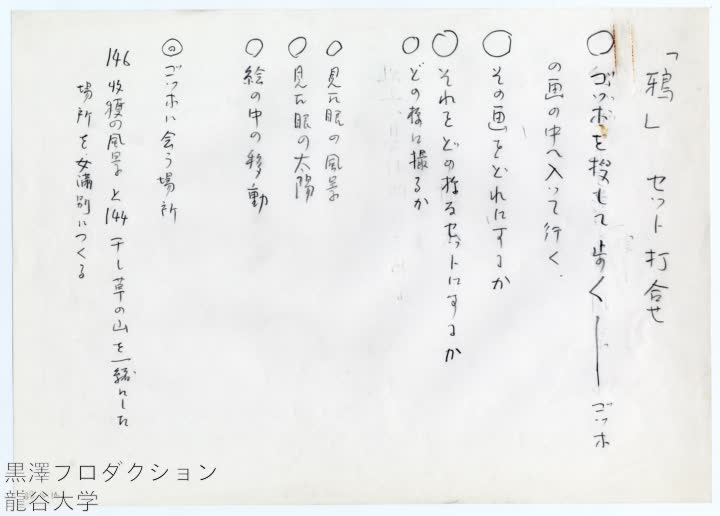 「鴉」 セット打合せ
○ ゴッホを探して歩く―ゴッホ
の画の中へ入いて行く
○ その画をどれにするか
○ それをどの様なセットにするか
○ どの様に撮るか
○ 見た眼の風景
○ 見た眼の太陽
○ 絵の中の移動
◎ ゴッホに会う場所
146 收穫の風景 と 144 干し草の山を一緒にした
場所を女満別につくる
黒澤プロダクション
龍谷大学